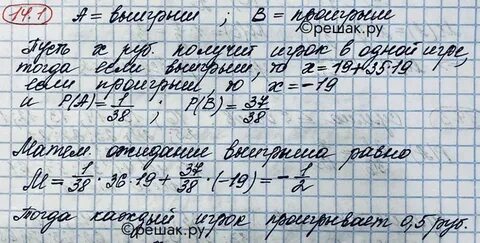 14.1 А = выигрыш ; В = проигрыш
©решак.ру
Пусть х руб. получит игрок в одной игре,
тогда если выигрыш, то х = 19+35·19
если проигрыш, то х = -19
и Р(А) = 1/38 ; Р(В) = 37/38
Матем. ожидание выигрыша равно
М = 1/38 · 36·19 + 37/38 · (-19) = -1/2
Тогда каждый игрок проигрывает 0,5 руб.
©решак.ру